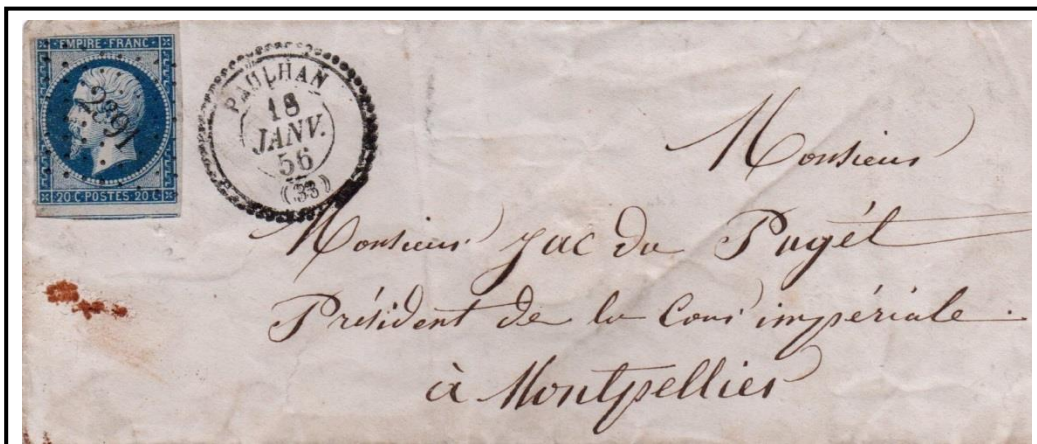 EMPIRE FRANC
20 C·POSTES·20 C
PAULHAN
18
JANV.
56
(33)
Monsieur
Monsieur Jac du Pugét
Président de la Cour impériale.
à Montpellier